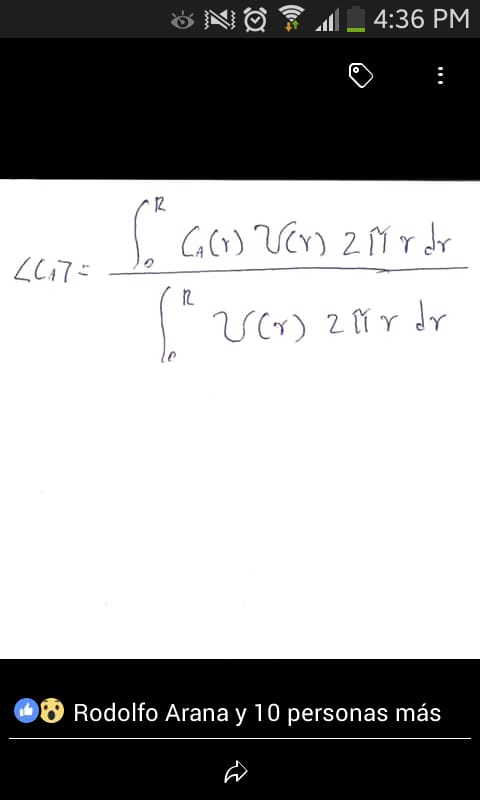 4:36 PM
<C_A> = ∫₀ᴿ C_A(r) V(r) 2πr dr
∫₀ᴿ V(r) 2πr dr
Rodolfo Arana y 10 personas más